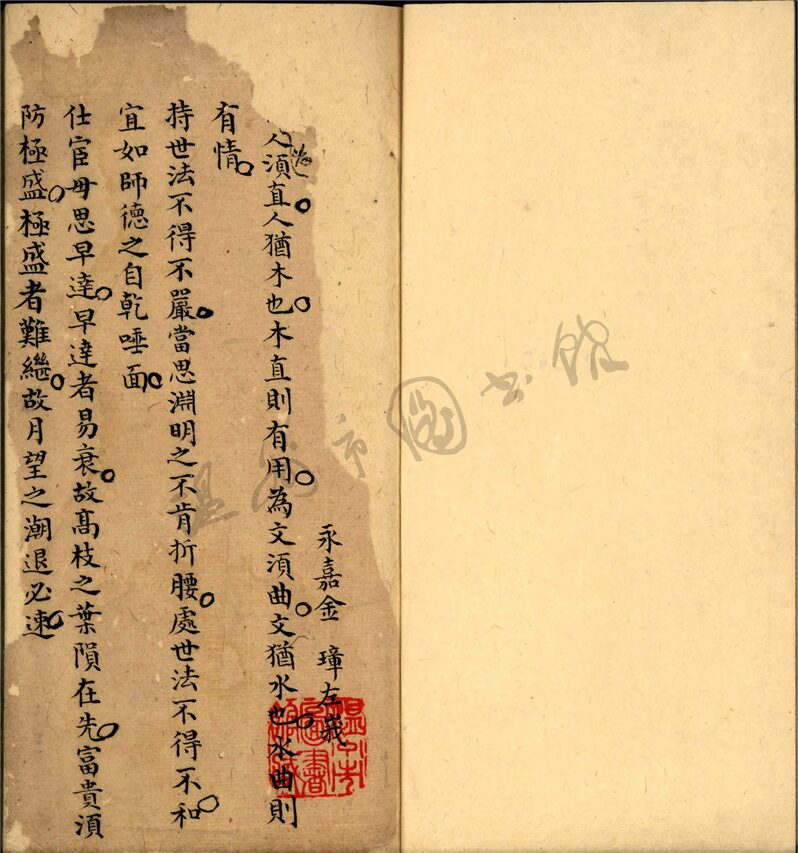 永嘉金　璋左峩
為
人湏直人猶木也木直則有用為文湏曲文猶水也水曲則
有情
持世法不得不嚴當思淵明之不肯折腰處世法不得不和
宜如師德之自乾唾面
仕宦毋思早達早達者易衰故高枝之葉隕在先富貴湏
防極盛極盛者難繼故月望之潮退必速
溫州市
圖書
館藏
温州市图书馆